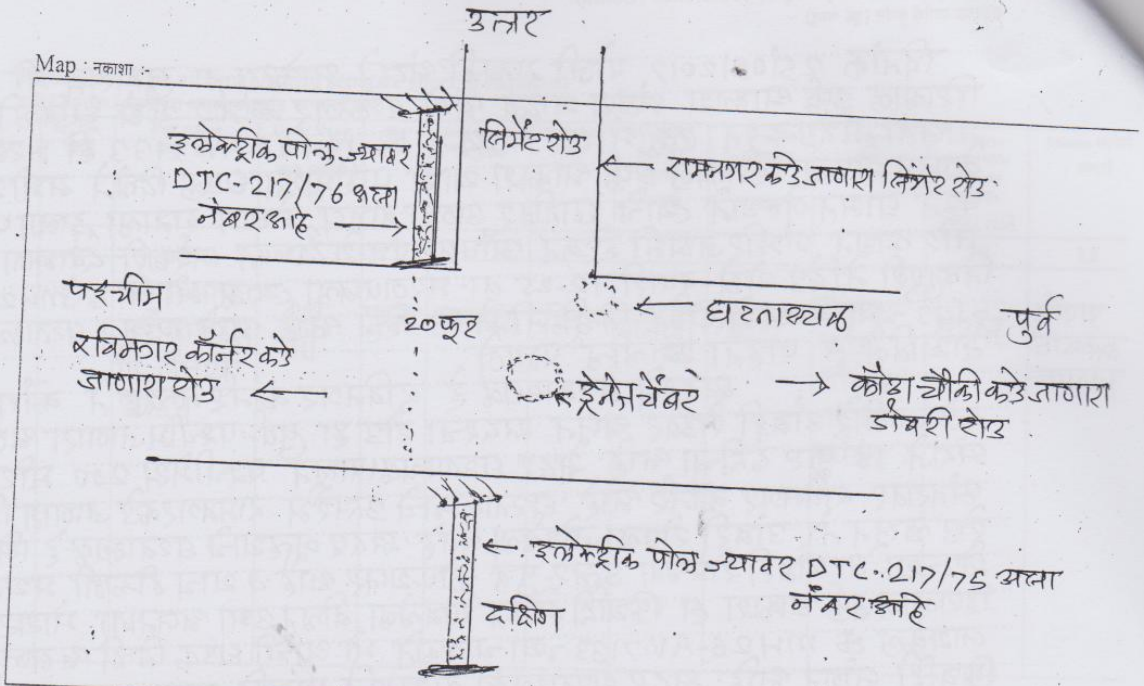 उत्तर
Map : नकाशा :-
इलेक्ट्रीक पोल ज्यावर
DTC-217/76 असा
नंबर आहे
सिमेंट रोड
रामनगर कडे जाणारा सिमेंट रोड
पश्चीम
20 फुट
घटनास्थळ
पुर्व
रविनगर कॉर्नर कडे
जाणारा रोड
ड्रेनेज चेंबर
चौकी कडे जाणारा
डांबरी रोड
इलेक्ट्रीक पोल ज्यावर DTC-217/75 असा
नंबर आहे
दक्षिण